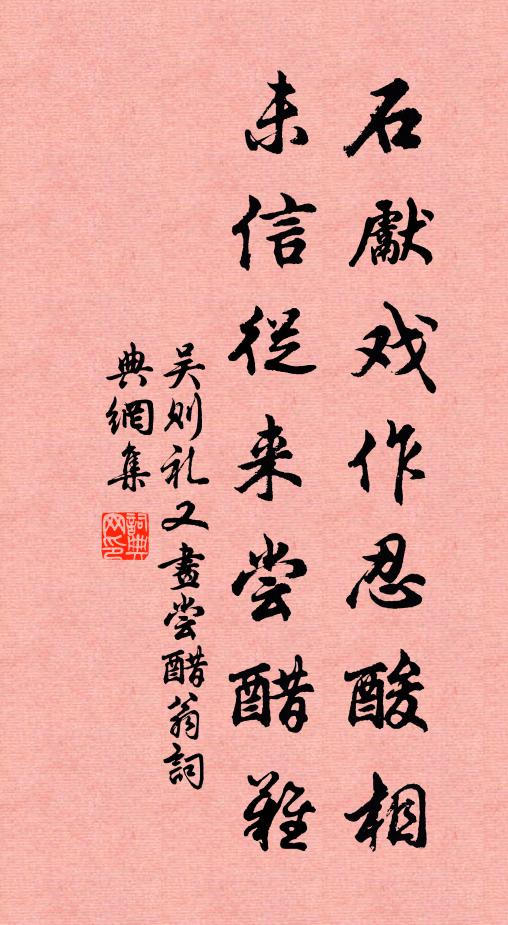 石獻戏作忍酸相
未信從来尝醋難
吴则礼又畫尝醋翁詞
典網集
詞典网印